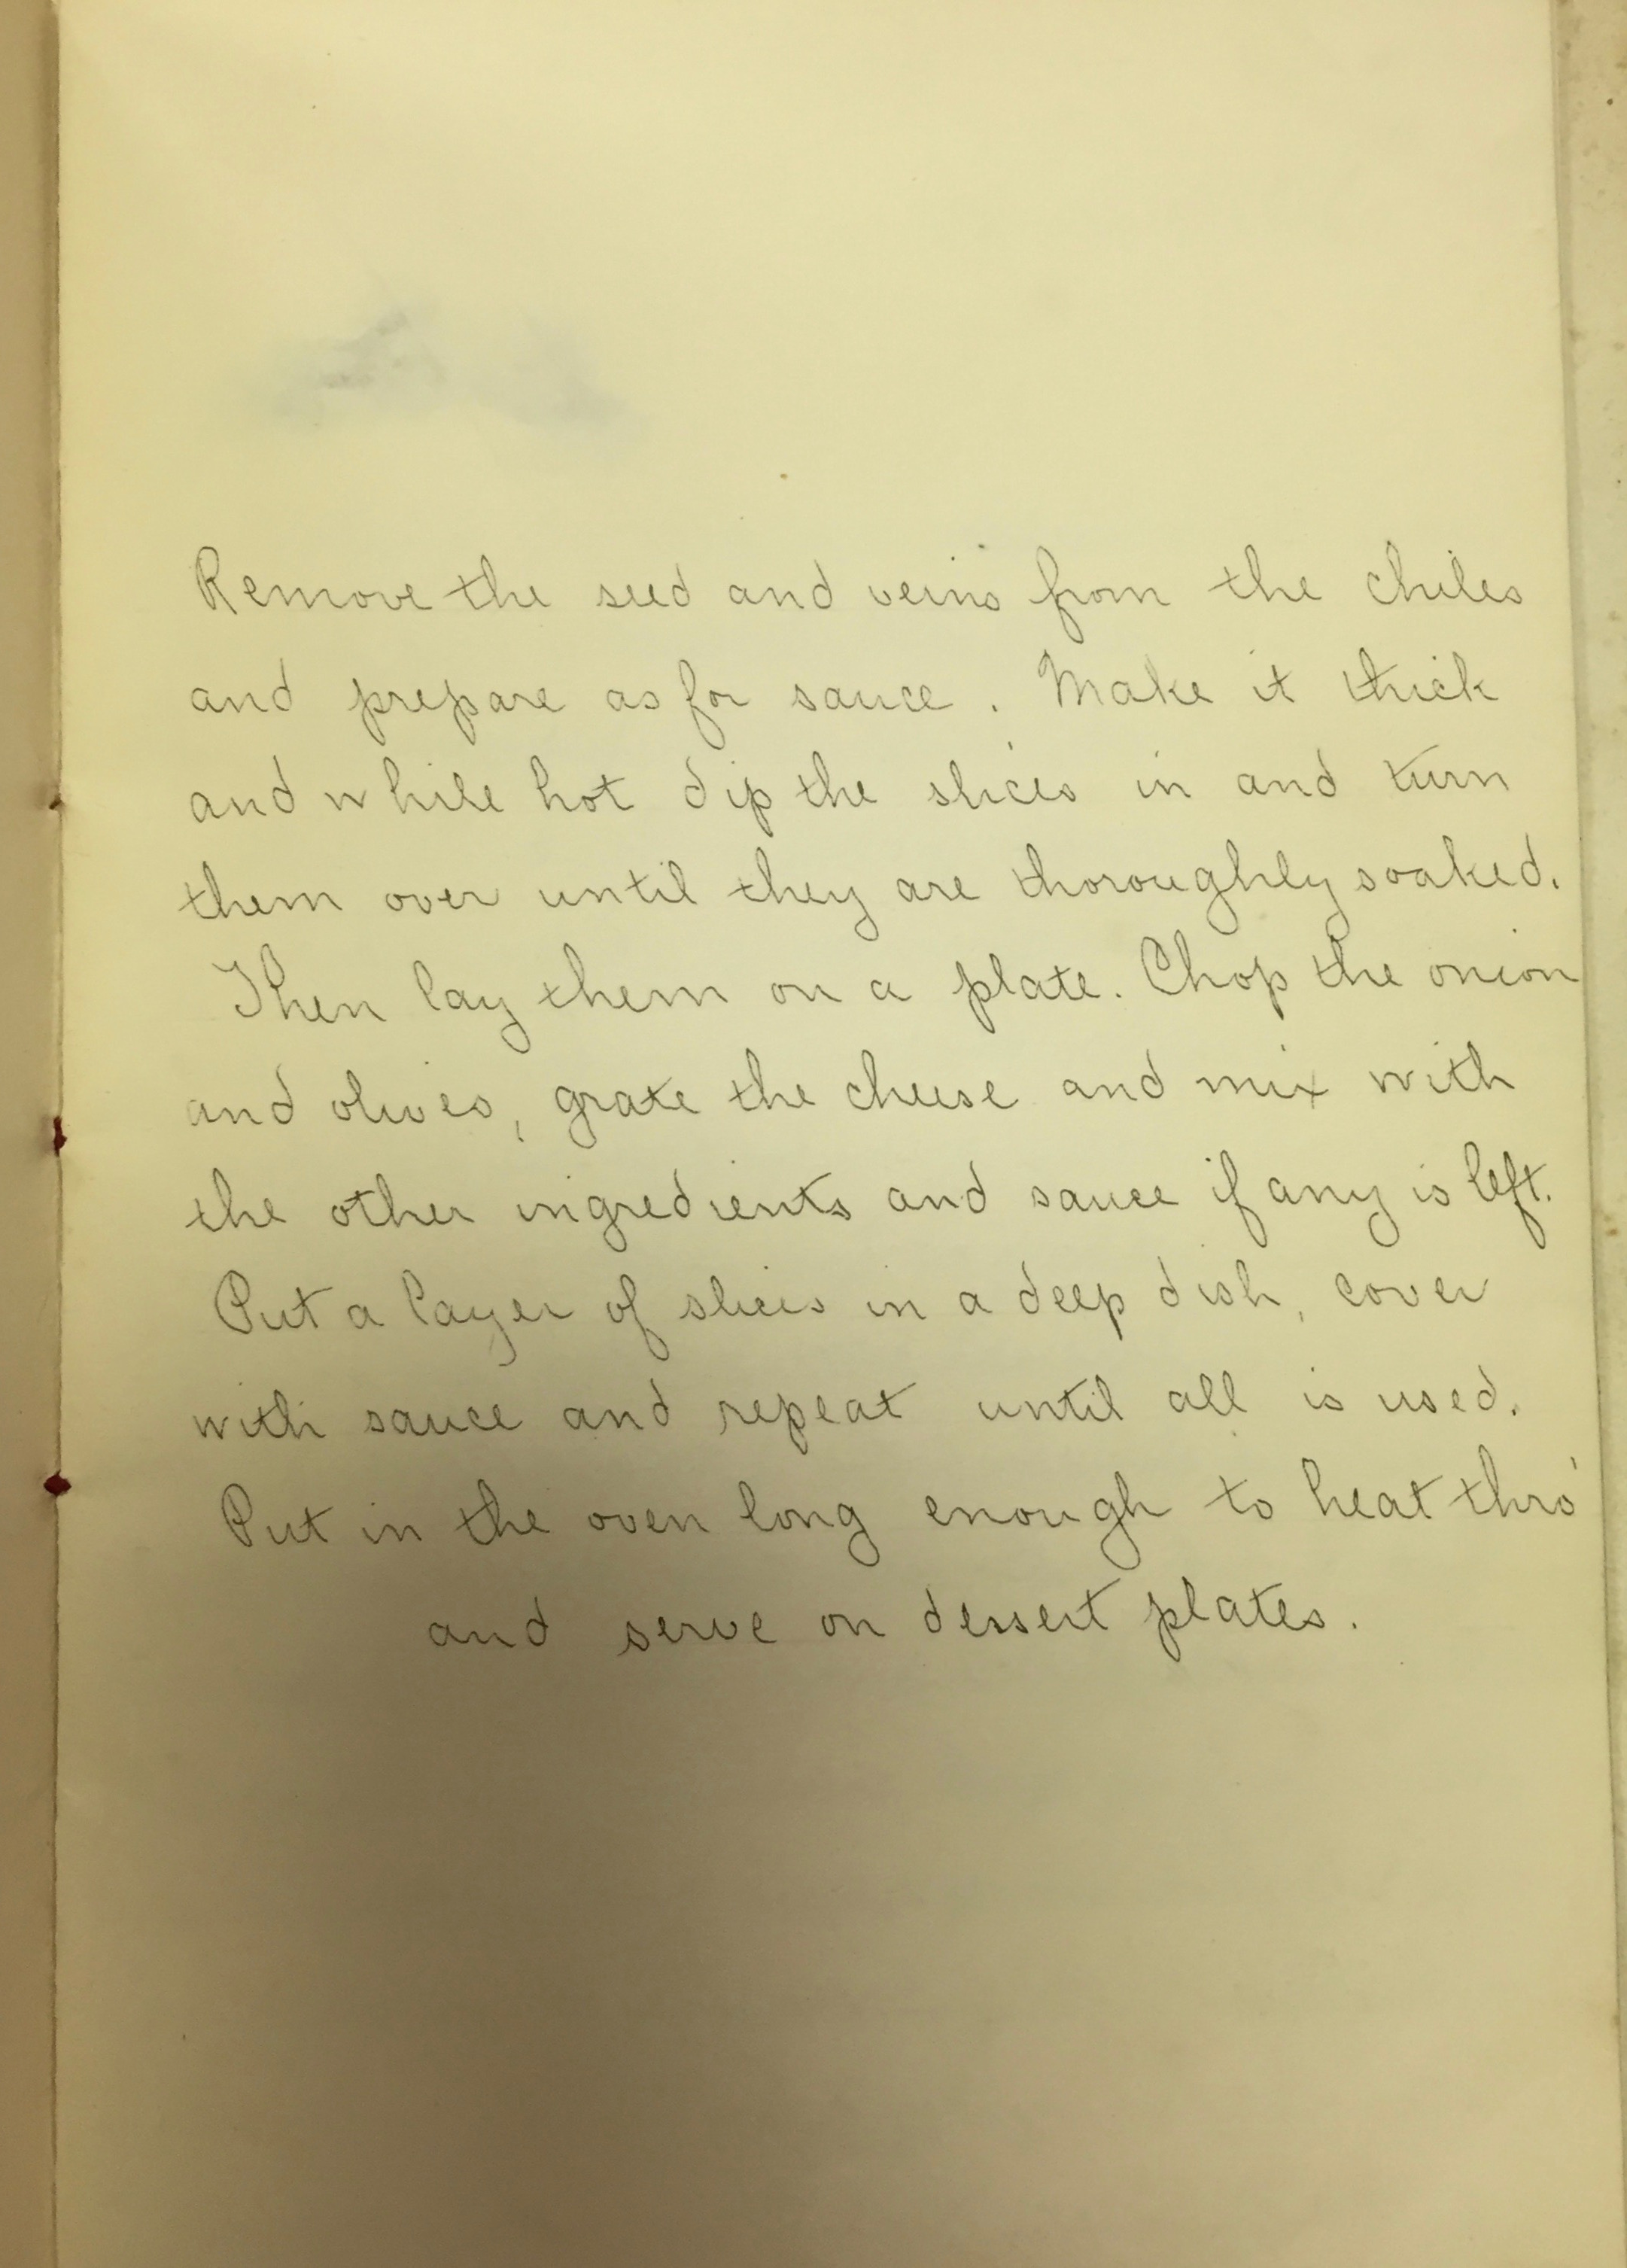 Remove the seed and veins from the chiles
and prepare as for sauce. Make it thick
and while hot dip the slices in and turn
them over until they are thoroughly soaked.
Then lay them on a plate. Chop the onion
and olives, grate the cheese and mix with
the other ingredients and sauce if any is left.
Put a layer of slices in a deep dish, cover
with sauce and repeat until all is used.
Put in the oven long enough to heat thro'
and serve on dessert plates.